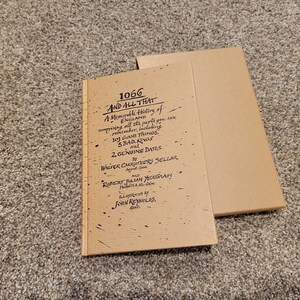 1066
AND ALL THAT
A Memorable History of
ENGLAND
comprising all the parts you can
remember, including
103 GOOD THINGS,
5 BAD KINGS
and
2 GENUINE DATES
by
WALTER CARRUTHERS SELLAR
and
ROBERT JULIAN YEATMAN
ILLUSTRATED by
JOHN REYNOLDS